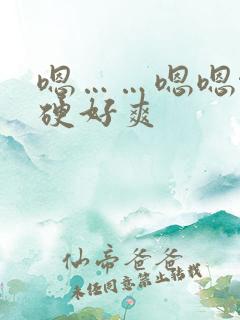 嗯……嗯嗯
硬好爽
仙帝爸爸
未经同意禁止转载